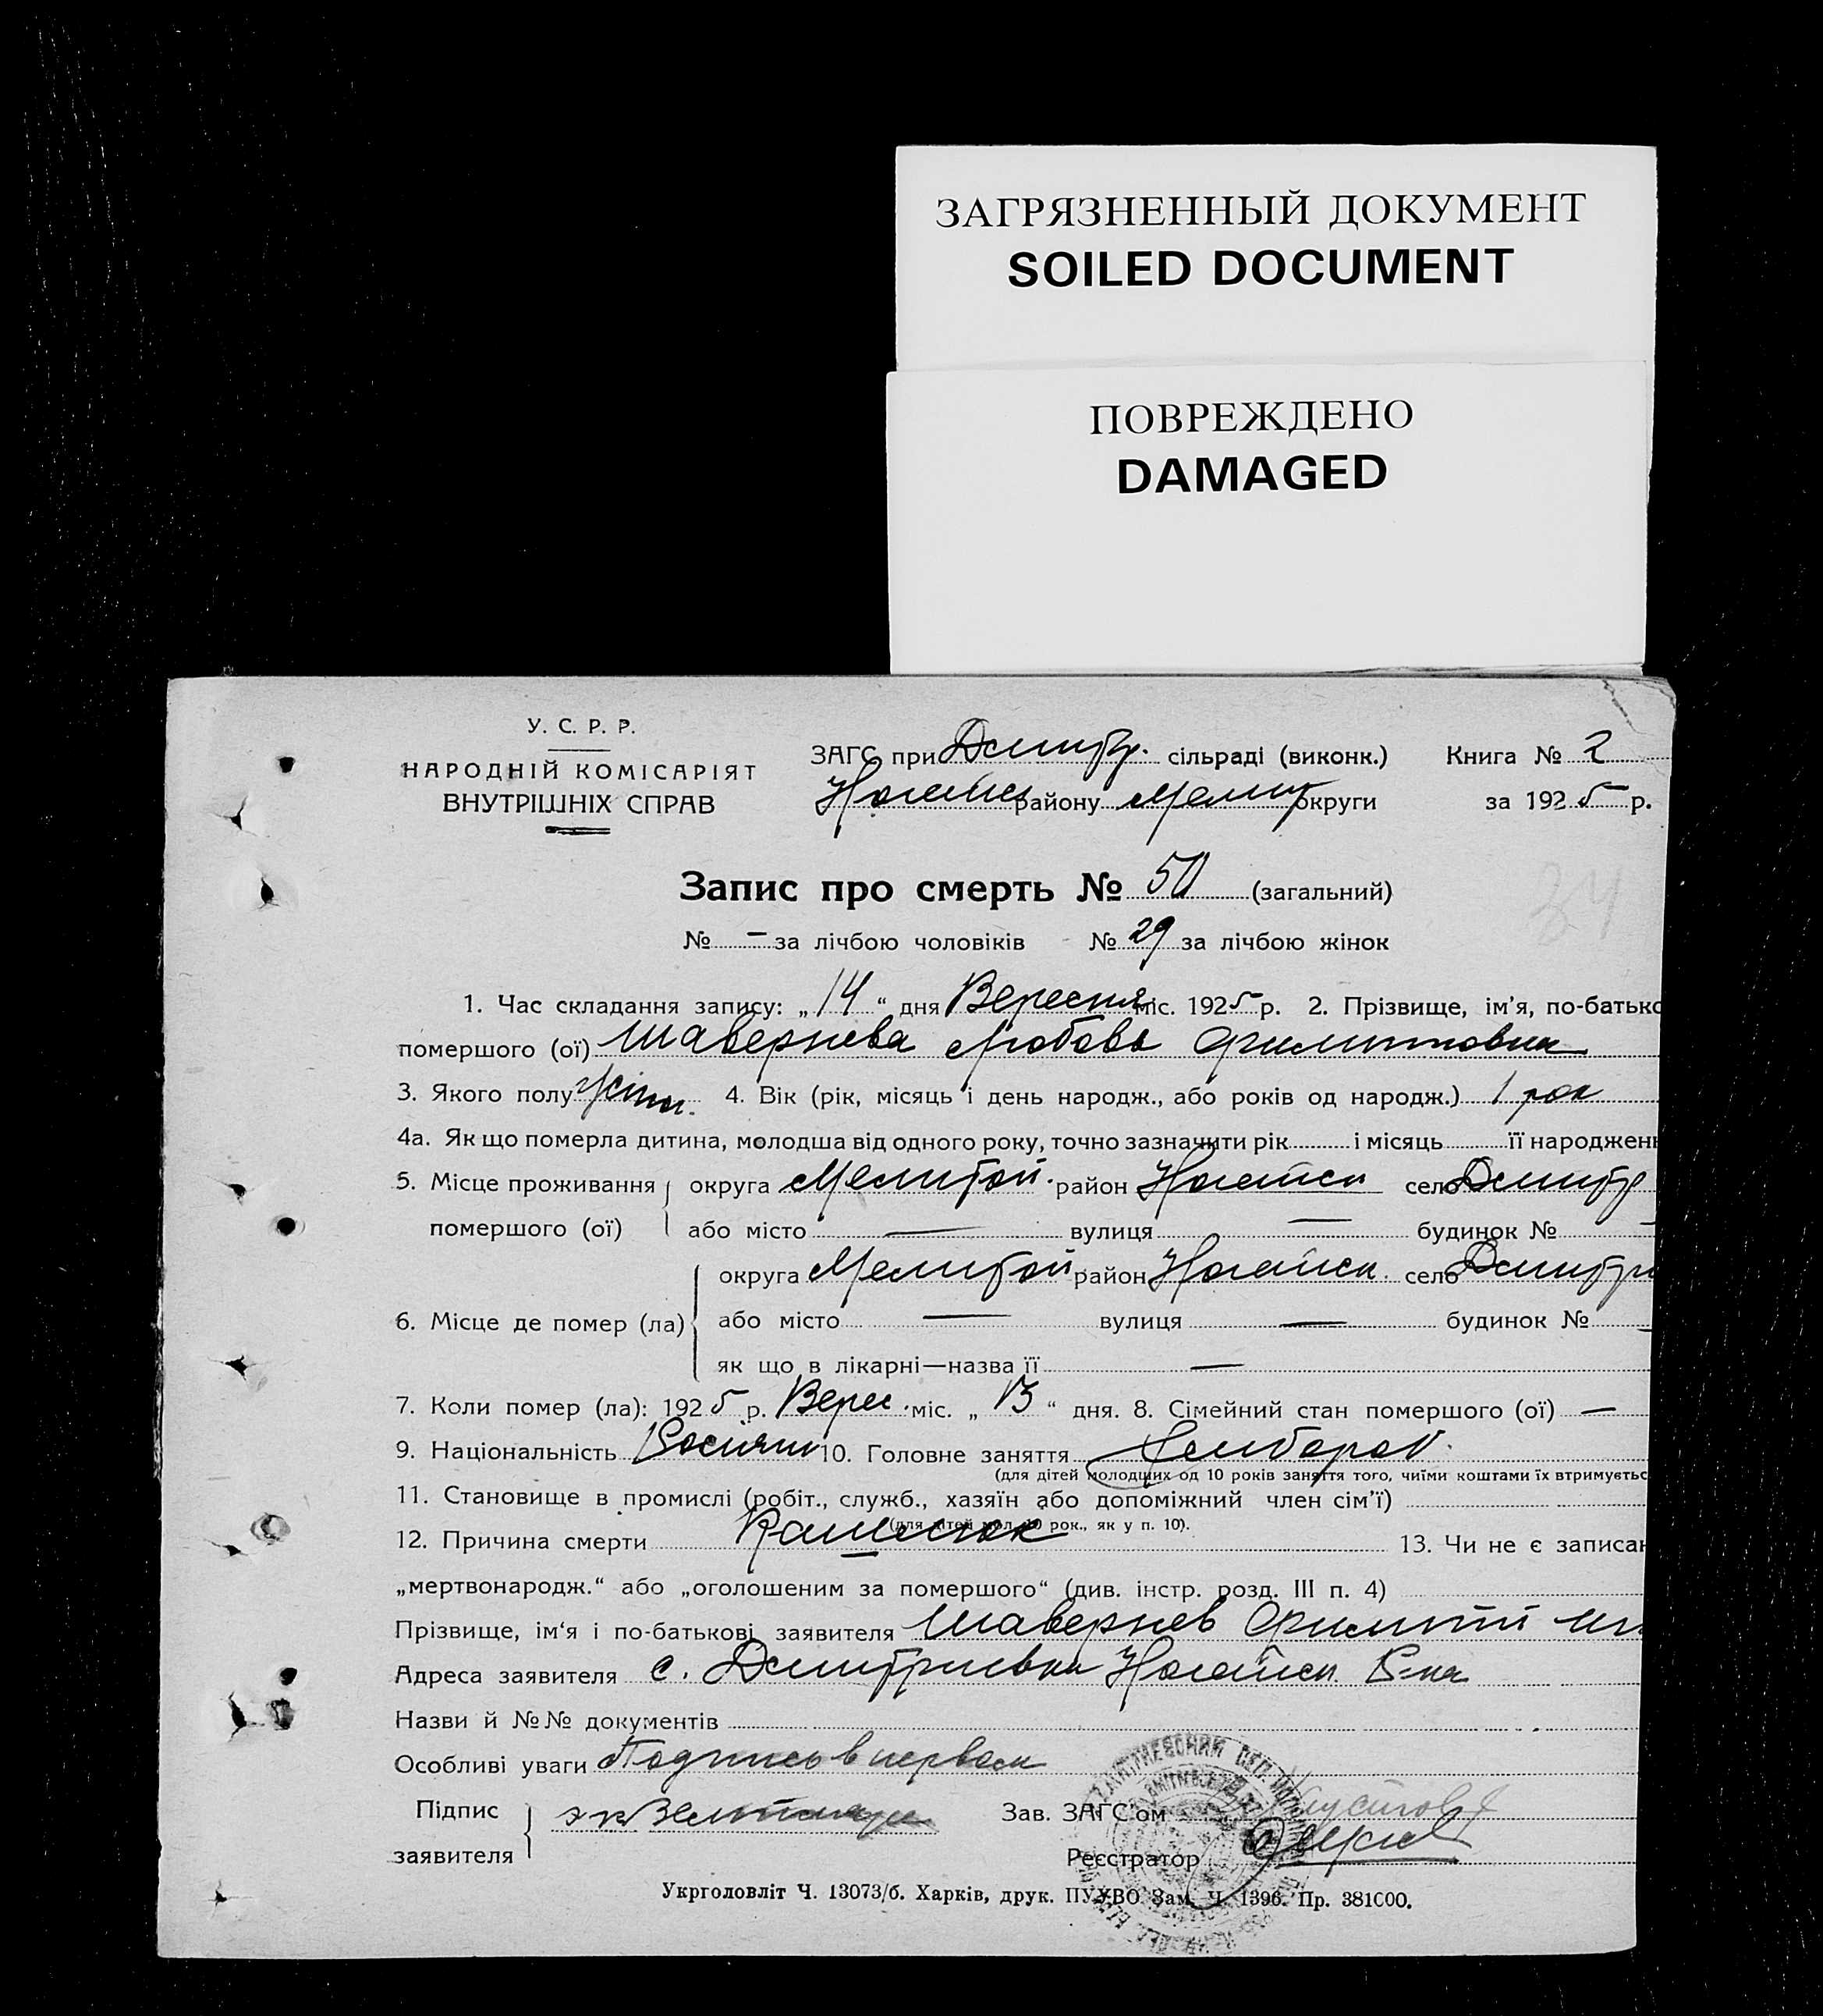 ЗАГРЯЗНЕННЫЙ ДОКУМЕНТ
SOILED DOCUMENT
ПОВРЕЖДЕНО
DAMAGED
У. С. Р. Р.
НАРОДНІЙ КОМІСАРІЯТ
ВНУТРІШНІХ СПРАВ
ЗАГС при Дмитр. сільраді (виконк.) Книга № 2
Ногайс району Мелит округи за 1925 р.
34
Запис про смерть № 50 (загальний)
№ — за лічбою чоловіків № 29 за лічбою жінок
1. Час складання запису: „14“ дня Вересня міс. 1925 р. 2. Прізвище, ім'я, по-батько
помершого (ої) Шавернева Любовь Филипповна
3. Якого полу жіноч. 4. Вік (рік, місяць і день народж., або років од народж.) 1 рок
4а. Як що померла дитина, молодша від одного року, точно зазначити рік і місяць її народжен
5. Місце проживання округа Мелитоп. район Ногайск село Дмитр
помершого (ої) або місто — вулиця — будинок № —
6. Місце де помер (ла) округа Мелитоп район Ногайск. село Дмитри
або місто — вулиця — будинок № —
як що в лікарні—назва її —
7. Коли помер (ла): 1925 р. Верес. міс. „13“ дня. 8. Сімейний стан помершого (ої) —
9. Національність Росіян 10. Головне заняття Хлибороб.
(для дітей молодших од 10 років заняття того, чиїми коштами їх втримуєтьс
11. Становище в промислі (робіт., служб., хазяїн або допоміжний член сім'ї)
(для дітей мол. 10 рок., як у п. 10).
12. Причина смерти Кашлюк 13. Чи не є записан
„мертвонародж.“ або „оголошеним за помершого“ (див. інстр. розд. III п. 4)
Прізвище, ім'я і по-батькові заявителя Шавернев Филипп
Адреса заявителя с. Дмитриевка Ногайск. Р-на
Назви й №№ документів
Особливі уваги Подпись в первом
Підпис
заявителя экземпляре
Зав. ЗАГС'ом
Реєстратор
Укрголовліт Ч. 13073/б. Харків, друк. ПУУВО Зам. Ч. 1396. Пр. 381000.